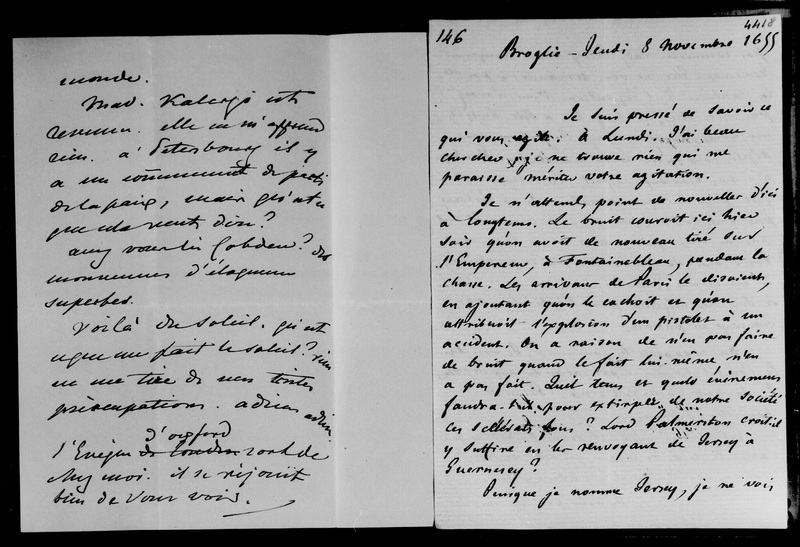 monde.
Mad. Kalergi est
revenue. elle ne m'apprend
rien. à Petersbourg il y
a un commencement de parti
de la paix, mais qu'est ce
que cela veut dire?
avez vous lu Cobden? des
d'éloquence
superbes.
Voilà du soleil. qu'est
ce que me fait le soleil? rien
ne me tire de mes tristes
préoccupations. adieu adieu
d'oxford
l'Evêque de London sort de
chez moi. il se réjouit
bien de vous voir.
4418
146
Broglie - Jeudi 8 Novembre 1855
Je suis pressé de savoir ce
qui vous agite. à Lundi. J'ai beau
chercher, je ne trouve rien qui me
paraisse mériter votre agitation.
Je n'attends point de nouvelles d'ici
à longtems. Le bruit couroit ici hier
soir qu'on avoit de nouveau tiré sur
l'Empereur, à Fontainebleau, pendant la
chasse. Les arrivans de Paris le disoient,
en ajoutant qu'on le cachoit et qu'on
attribuoit l'explosion d'un pistolet à un
accident. On a raison de n'en pas faire
de bruit quand le fait lui-même n'en
a pas fait. Quel tems et quels évènemens
faudra-t-il pour extirper de notre société
ces scélérats fous? Lord Palmerston croit-il
y suffire en les renvoyant de Jersey à
Guernesey?
Puisque je nomme Jersey, je ne vois